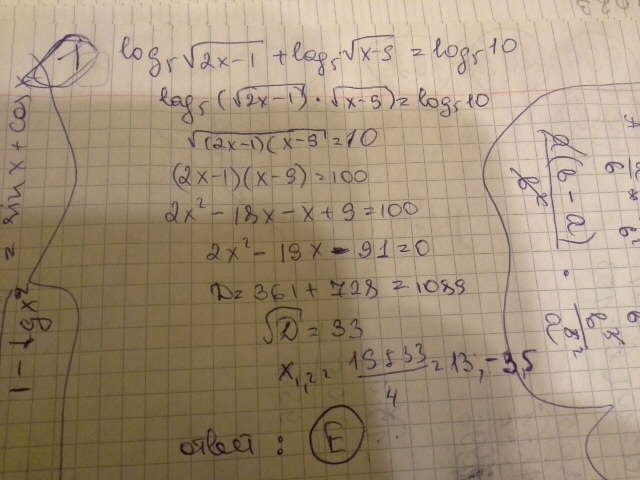 1
log₅√(2x-1) + log₅√(x-9) = log₅10
log₅(√(2x-1) · √(x-9)) = log₅10
√((2x-1)(x-9)) = 10
(2x-1)(x-9) = 100
2x² - 18x - x + 9 = 100
2x² - 19x - 91 = 0
D = 361 + 728 = 1089
√D = 33
x₁,₂ = (19 ± 33)/4 = 13; -3,5
ответ : E
1 - tgx² = sin x + cos x